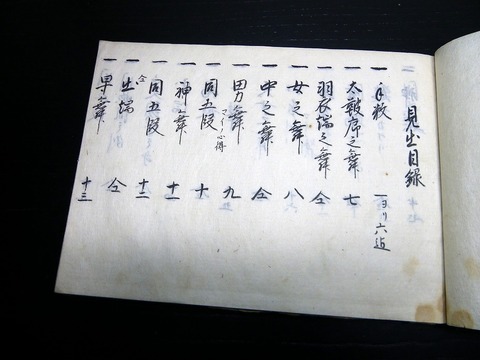 見出目録
一 手数 一ヨリ六迠
一 太鼓序之舞 七
一 羽衣端之舞 仝
一 女之舞 八
一 中之舞 仝
一 男舞 九
一 同五段 心得 十
一 神舞 十一
一 同五段 十二
一 出端 仝
一 早舞 十三